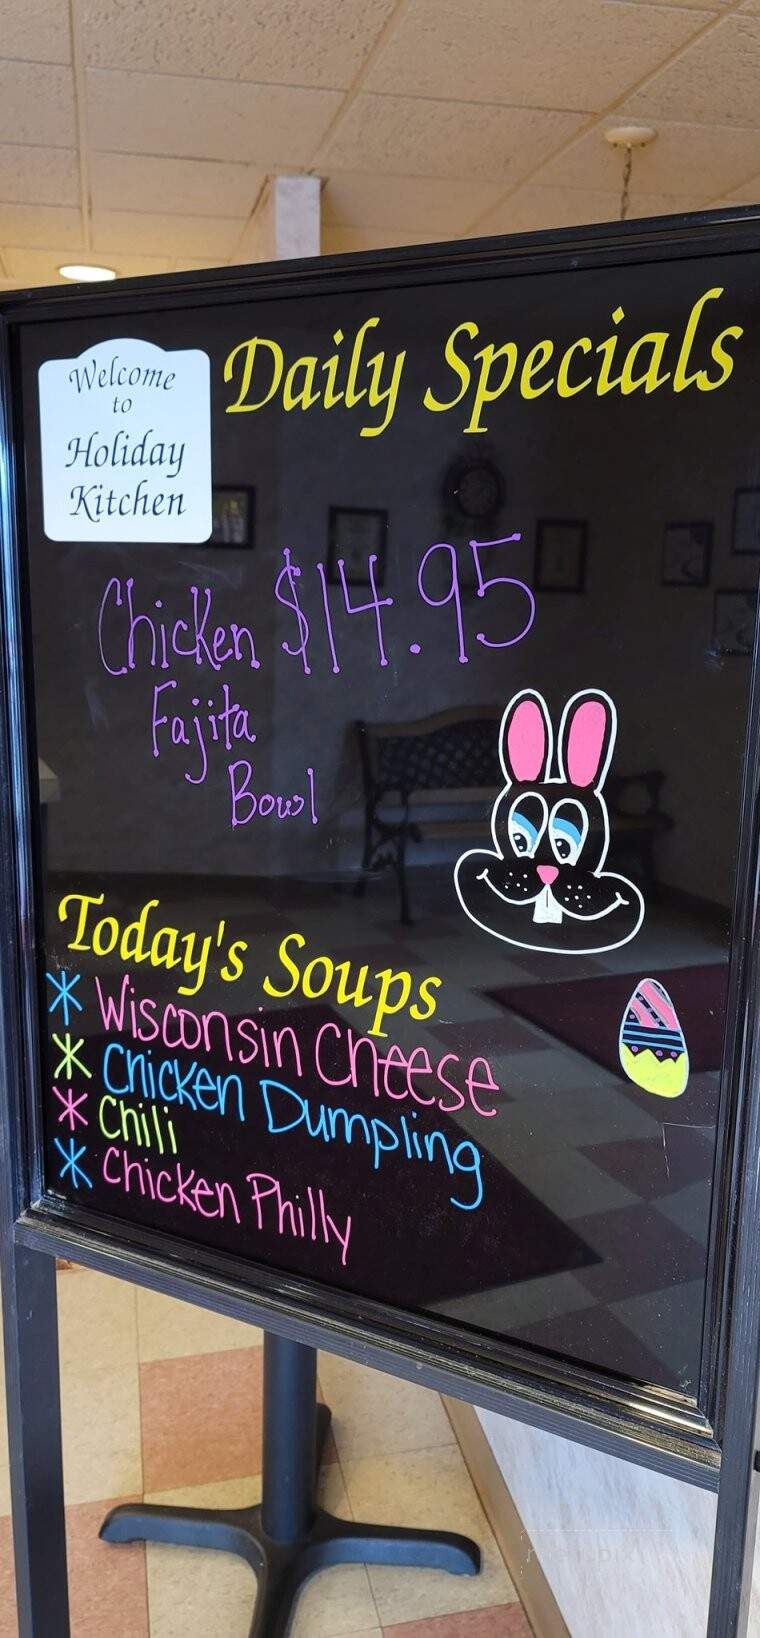 Welcome
to
Holiday
Kitchen
Daily Specials
Chicken $14.95
Fajita
Bowl
Today's Soups
* Wisconsin Cheese
* Chicken Dumpling
* Chili
* Chicken Philly